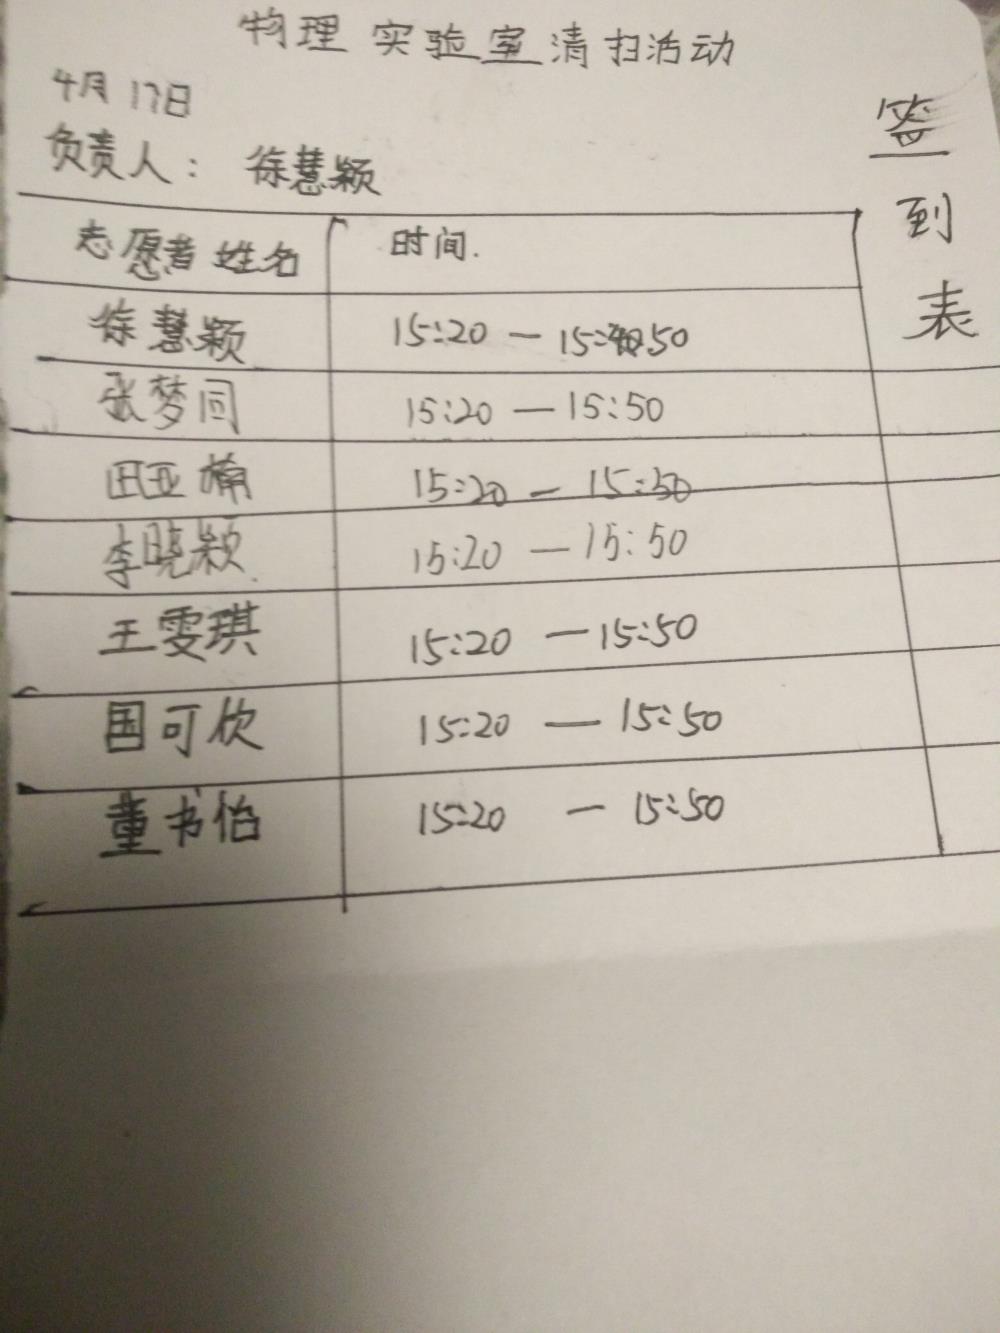 物理实验室清扫活动
签到表
4月17日
负责人：徐慧颖
志愿者姓名 时间.
徐慧颖 15:20 — 15:50
张梦同 15:20 — 15:50
田亚楠 15:20 — 15:50
李晓颖 15:20 — 15:50
王雯琪 15:20 — 15:50
国可欣 15:20 — 15:50
董书怡 15:20 — 15:50